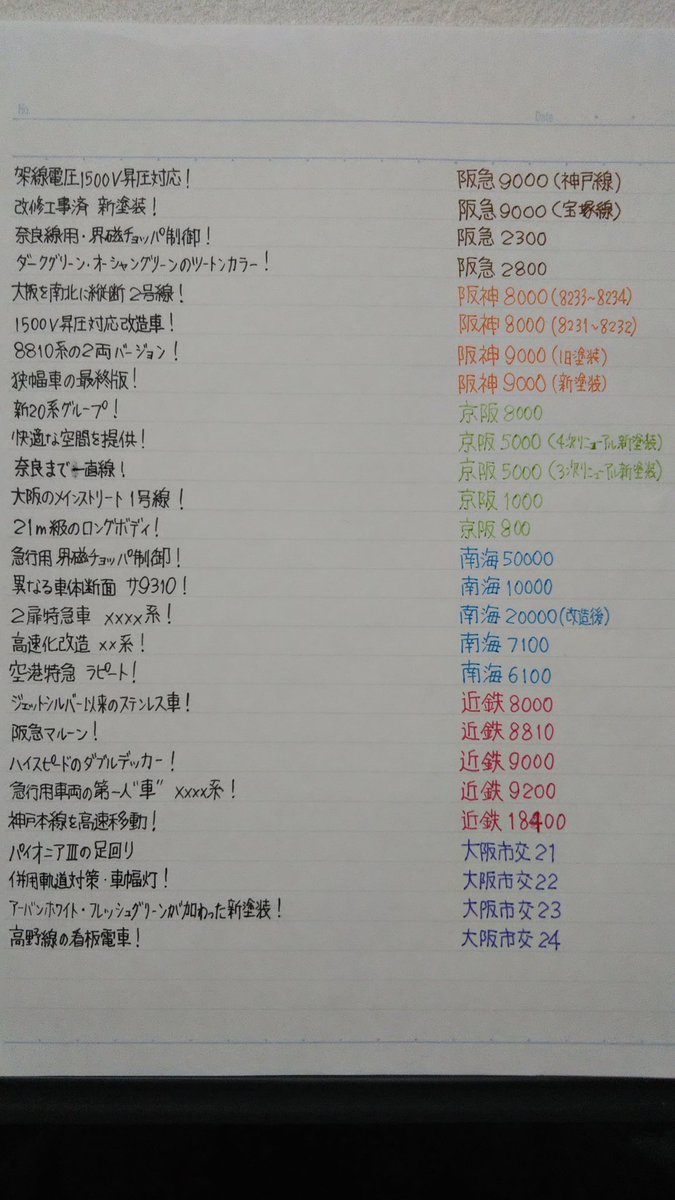 No.
Date
架線電圧1500V昇圧対応! 阪急9000(神戸線)
改修工事済 新塗装! 阪急9000(宝塚線)
奈良線用・界磁チョッパ制御! 阪急2300
ダークグリーン・オーシャングリーンのツートンカラー! 阪急2800
大阪を南北に縦断2号線! 阪神8000(8233~8234)
1500V昇圧対応改造車! 阪神8000(8231~8232)
8810系の2両バージョン! 阪神9000(旧塗装)
狭幅車の最終版! 阪神9000(新塗装)
新20系グループ! 京阪8000
快適な空間を提供! 京阪5000(4次リニューアル新塗装)
奈良まで一直線! 京阪5000(3次リニューアル新塗装)
大阪のメインストリート1号線! 京阪1000
21m級のロングボディ! 京阪800
急行用 界磁チョッパ制御! 南海50000
異なる車体断面 サ9310! 南海10000
2扉特急車 xxxx系! 南海20000(改造後)
高速化改造 xx系! 南海7100
空港特急 ラピート! 南海6100
ジェットシルバー以来のステンレス車! 近鉄8000
阪急マルーン! 近鉄8810
ハイスピードのダブルデッカー! 近鉄9000
急行用車両の第一人"車" xxxx系! 近鉄9200
神戸本線を高速移動! 近鉄18400
パイオニアⅢの足回り 大阪市交21
併用軌道対策・車幅灯! 大阪市交22
アーバンホワイト・フレッシュグリーンが加わった新塗装! 大阪市交23
高野線の看板電車! 大阪市交24